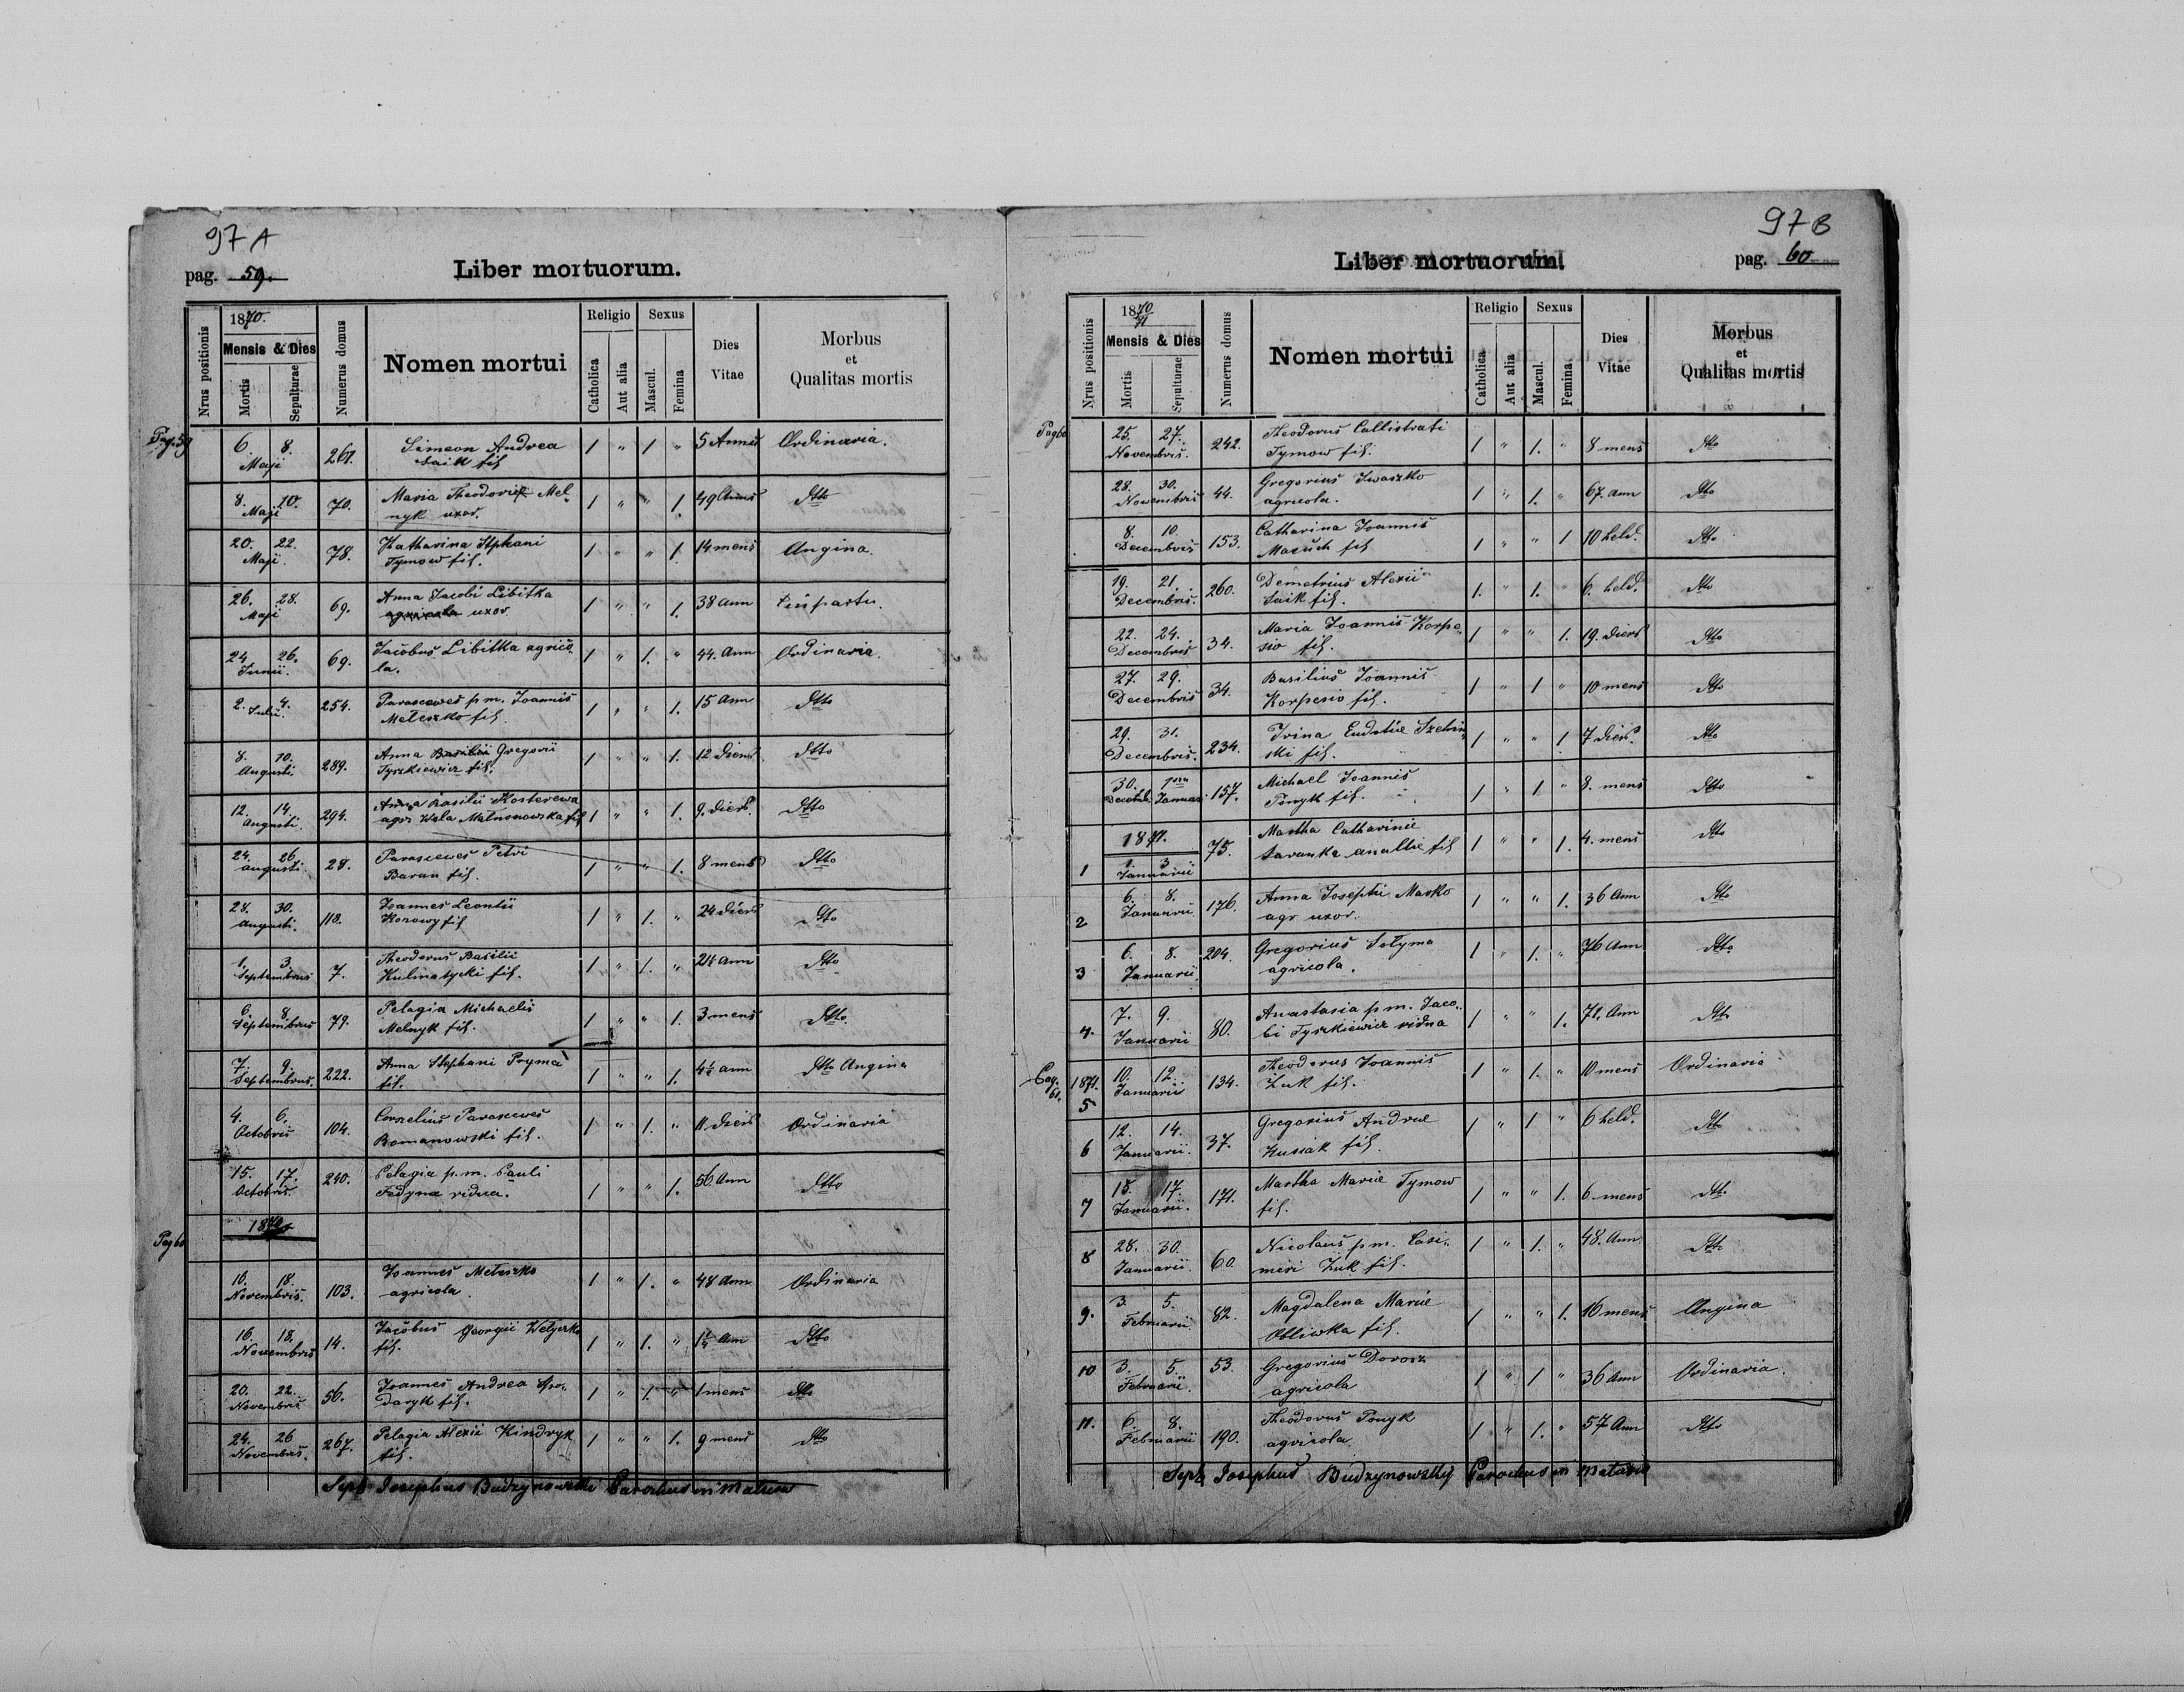 97 A
pag. 59.
Liber mortuorum.
Nrus positionis
1870.
Mensis & Dies
Mortis
Sepulturae
Numerus domus
Nomen mortui
Religio
Catholica
Aut alia
Sexus
Mascul.
Femina
Dies Vitae
Morbus et Qualitas mortis
Pag. 59
6. 8. Maji 261. Simeon Andrea 1 " 1 " 5 Annus Ordinaria.
Saik fil
8. 10. Maji 70. Maria Theodori Mel- 1 " " 1. 49 Annus Dtto
nyk uxor.
20. 22. Maji. 78. Katharina Stphani 1 " " 1. 14 mens Angina.
Tymow fil.
26. 28. Maji 69. Anna Jacobi Libitka 1 " " 1. 38 Ann
agricola uxor.
24. 26. Junii. 69. Jacobus Libitka agrico- 1 " 1. " 44. Ann Ordinaria.
la.
2. 4. Julii. 254. Parascewes p m. Joannis 1 " " 1. 15 Ann Dtto
Meteszko fil.
8. 10. Augusti 289. Anna Basilii Gregorii 1 " " 1. 12 Dierum Dtto
Tyszkiewicz fil.
12. 14. Augusti. 294. Anna Basilii Kosterewa 1 " " 1. 9. dier. Dtto
agr. fil
24. 26. augusti. 28. Parascewes Petri 1 " " 1. 8 mens Dtto
Baran fil.
28. 30. augusti. 118. Joannes Leontii 1 " 1. " 24 dier Dtto
Korowy fil
1. 3. Septembrus 7. Theodorus Basilii 1 " 1. " 2½ Ann Dtto
Kulmatycki fil.
6. 8. Septembrus 79. Pelagia Michaelis 1 " " 1. 3 mens Dtto.
Melnyk fil.
7. 9. Septembrus. 222. Anna Stephani Pryma 1 " " 1. 4½ ann Dtto Angina
fil.
4. 6. Octobris 104. Cornelius Parascewes 1 " 1. " 11. dier Ordinaria
Romanowski fil.
15. 17. Octobris. 240. Pelagia p.m. Pauli 1 " " 1. 56 Ann Dtto
Fedyna vidua.
Pag 60
1870
16. 18. Novembris. 103. Joannes Meteszko 1 " 1. " 48 Ann Ordinaria
agricola.
16. 18. Novembris 14. Jacobus Georgii 1 " 1. " 1¼ Ann Dtto
fil.
20. 22. Novembris 56. Joannes Andrea Spo- 1 " 1. " 1 mens Dtto
daryk fil.
24. 26 Novembris. 267. Pelagia Alexii Kindryk 1 " " 1. 9 mens Dtto
fil.
Josephus Budzynowski Parochus in
97 B
pag. 60
Liber mortuorum.
Nrus positionis
1870
71
Mensis & Dies
Mortis
Sepulturae
Numerus domus
Nomen mortui
Religio
Catholica
Aut alia
Sexus
Mascul.
Femina
Dies Vitae
Morbus et Qualitas mortis
Pag 60
25. 27. Novembris. 242. Theodorus Callistrati 1 " 1. " 8 mens Dtto
Tymow fil.
28. 30. Novembris 44. Gregorius Iwaszko 1 " 1. " 67. Ann Dtto
agricola.
8. 10. Decembris 153. Catharina Joannis 1 " " 1 10 hebd. Dtto.
Mazuch fil
19. 21. Decembris. 260. Demetrius Alexii 1. " 1. " 6. hebd. Dtto
Saik fil.
22. 24. Decembris 34. Maria Joannis Korpe- 1 " " 1. 19. dier Dtto
sio fil.
27. 29. Decembris 34. Basilius Joannis 1 " 1 " 10 mens Dtto
Korpesio fil.
29. 31. Decembris. 234. Irina 1 " " 1 7 dier. Dtto
ski fil.
30. Decemb. Januar 157. Michael Joannis 1 " 1. " 8. mens Dtto
Ponyk fil.
1871.
1 1. 3 Januarii 75. Martha Catharinie 1 " " 1. 4. mens Dtto
fil
2 6. 8. Januarii 176. Anna Josephi Marko 1 " " 1. 36 Ann Dtto
agr uxor.
3 6. 8. Januarii. 204. Gregorius Sołyma 1 " 1. " 76 Ann Dtto
agricola.
4. 7. 9. Januarii 80. Anastasia p m. Jaco- 1 " " 1. 71. Ann Dtto
bi Tyszkiewicz vidua
Pag. 61.
1871. 5 10. 12. Januarii 134. Theodorus Joannis 1 " 1. " 10 mens Ordinaria
Zuk fil.
6 12. 14. Januarii. 37. Gregorius Andreae 1 " 1 " 6 hebd. Dtto
Kusiak fil.
7 15. 17. Januarii. 171. Martha Mariae Tymow 1 " " 1. 6 mens Dtto
fil.
8 28. 30. Januarii. 60. Nicolaus p m. Casi- 1 " 1. " 48. Ann Dtto
miri Żuk fil.
9. 3. 5. Februarii 82. Magdalena Mariae 1 " " 1. 16 mens Angina
Obliwka fil.
10 3. 5 Februarii. 53. Gregorius Dorosz 1 " 1 " 36 Ann Ordinaria.
agricola
11. 6. 8. Februarii 190. Theodorus Ponyk 1 " 1. " 57 Ann Dtto
agricola
Josephus Budzynowsky Parochus in